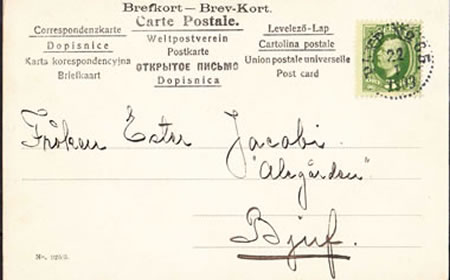 Brefkort — Brev-Kort.
Carte Postale.
Correspondenzkarte
Weltpostverein
Levelező-Lap
Dopisnice
Postkarte
Cartolina postale
Karta korespondencyjna
ОТКРЫТОЕ ПИСЬМО
Union postale universelle
Briefkaart
Dopisnica
Post card
22
Fröken Ester Jacobi
"Alegården"
Bjuf.